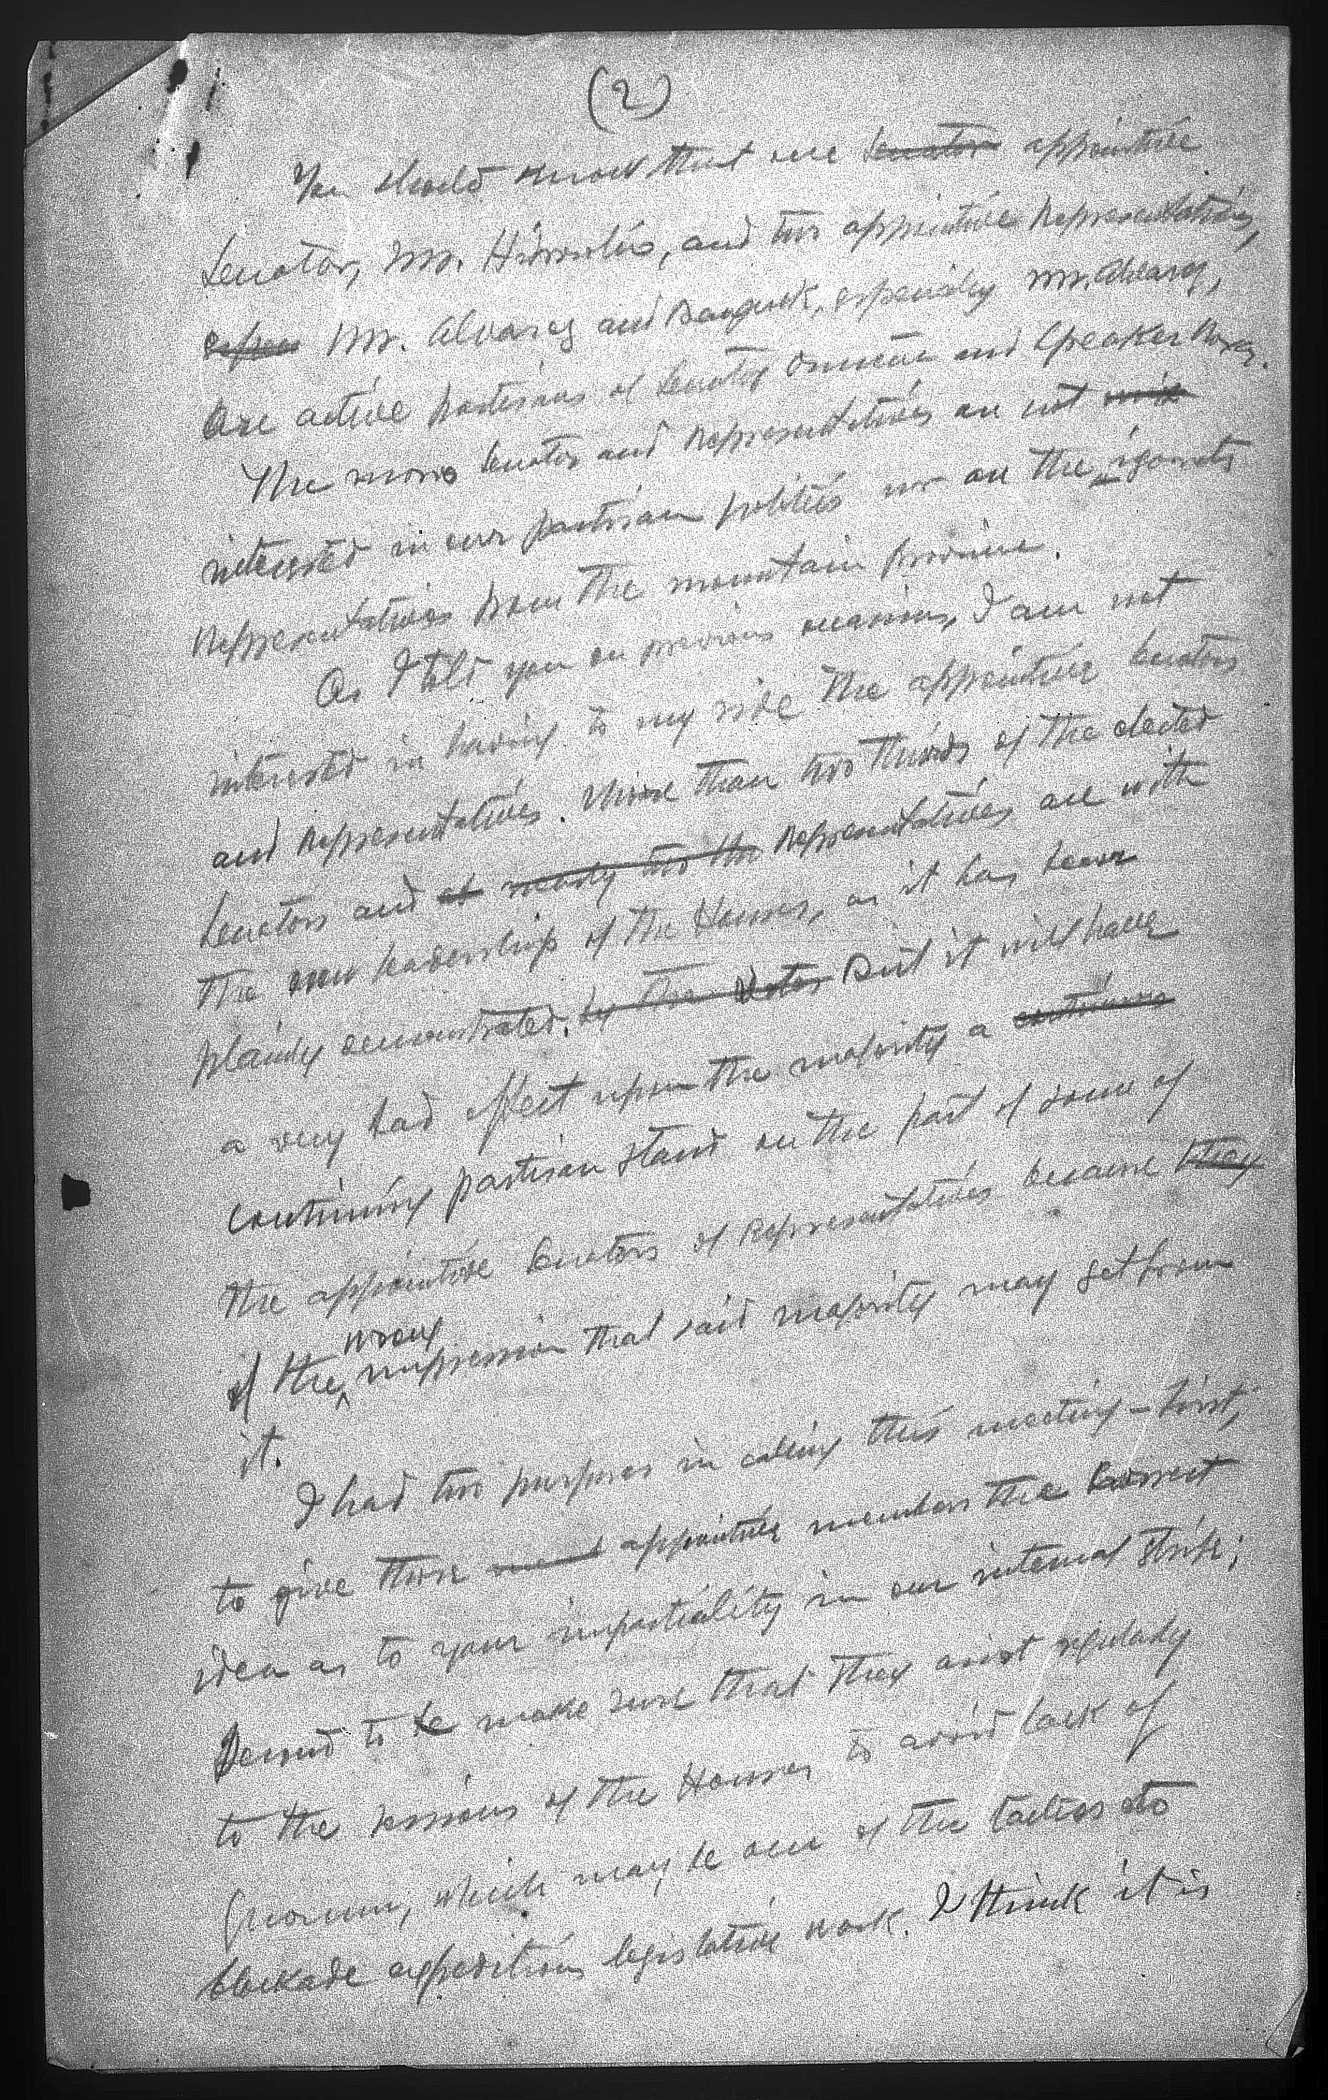 (2)
You should know that one Senator appointive
Senator, Mr. , and two appointive Representatives,
Mr. Alvarez and , especially Mr. Alvarez,
are active partisans of Senator Osmeña and Speaker Roxas.
The moro Senator and Representatives are not
interested in our partisan politics nor are the igorots
Representatives from the mountain province.
As I told you on previous occasions, I am not
interested in having to my side the appointive Senators
and Representatives. More than two thirds of the elected
Senators and of nearly two the Representatives are with
the new leadership of the Houses, as it has been
plainly demonstrated. by the votes But it will have
a very bad effect upon the majority a continuous
continuing partisan stand on the part of some of
the appointive Senators of Representatives because they
of the wrong impression that said majority may get from
it.
I had two purposes in calling this meeting – first,
to give those appointive members the correct
idea as to your impartiality in our internal strife;
Second to be make sure that they assist regularly
to the sessions of the Houses to avoid lack of
Quorum, which may be one of the tactics to
blockade expeditious legislative work. I think it is